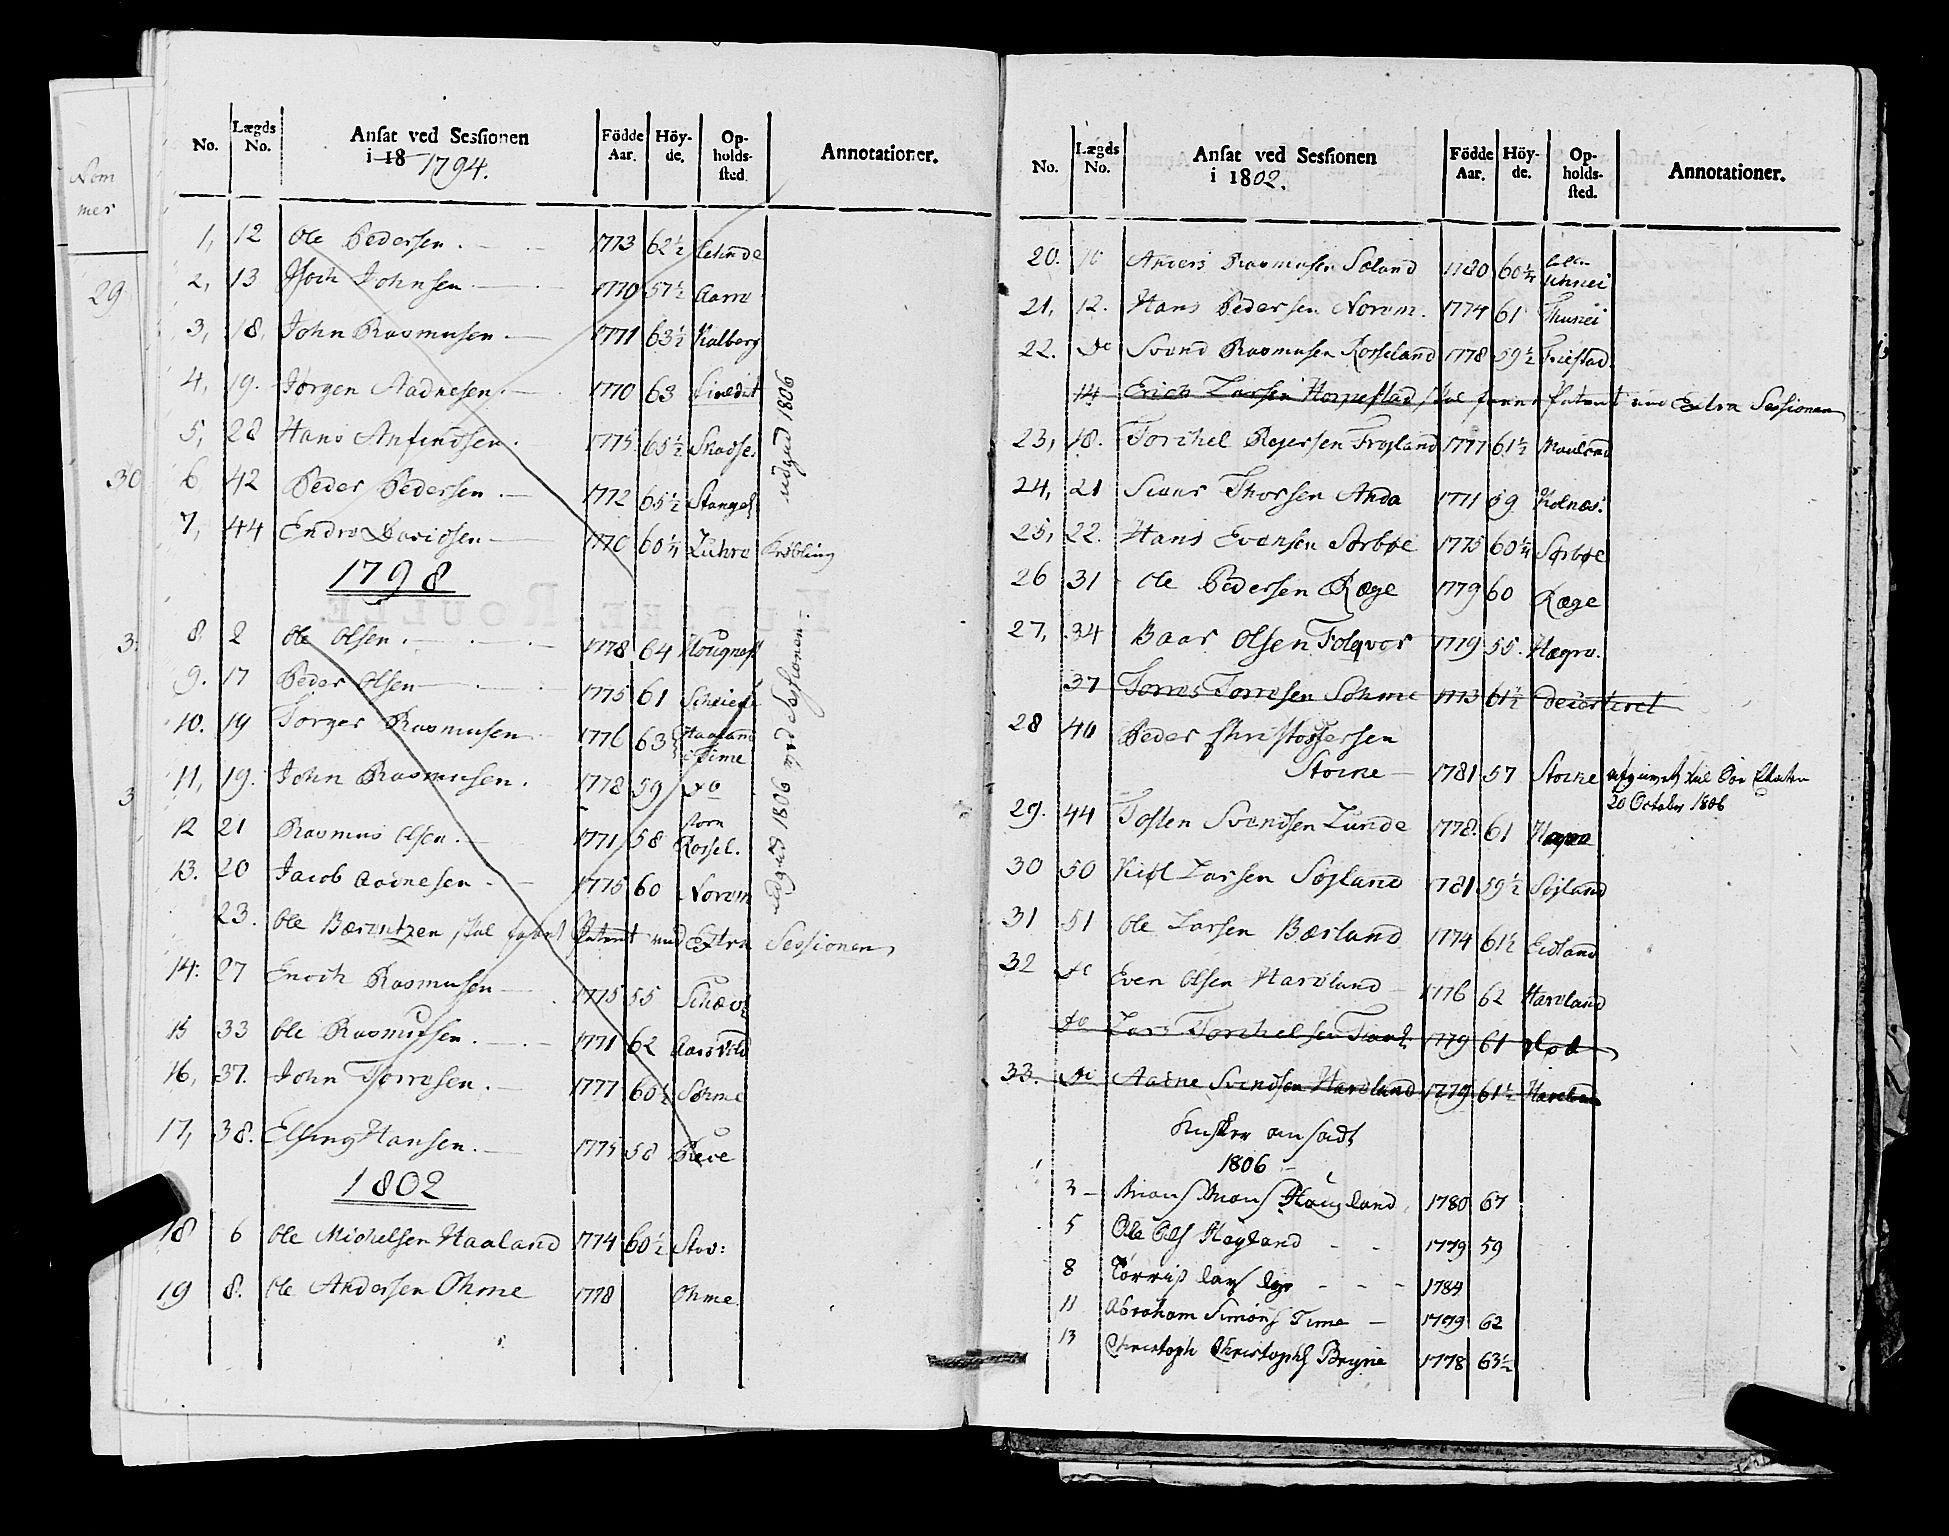 Nom
mer
29
30
3
3
No. Lægds No. Ansat ved Sessionen i 18 1794. Födde Aar. Höyde. Opholdssted. Annotationer.
1, 12 Ole Pedersen. 1773 62½
2, 13 Johnsen 1770 57½
3, 18. John Rasmusen. 1771 63½ Kalberg
4, 19. Jørgen Aadnesen. 1770 63
5, 28 Hans Anfindsen. 1775 65½
6 42 Peder Pedersen. 1772 65½ Stangel
7, 44 Endre Davidsen 1770 60¼ Krøbling
udgud 1806
1798
8 2 Ole Olsen. 1778 64
9. 17 Peder Olsen 1775 61
10. 19 Torger Rasmusen 1776 63 Haaland i Time
11, 19. John Rasmusen. 1778 59 do
12 21 Rasmus Olsen. 1771 58 Rossel.
13. 20 Jacob Aadnesen 1775 60 Norem
23. Ole Bærentzen skal have Patent ved Extra Sessionen
14. 27 Enoch Rasmusen 1775 55
15 33 Ole Rasmusen. 1771 62
16, 37. John Torresen. 1777 60½ Sørme
17, 38. Elling Hansen. 1775 58 Reve
udgud 1806 ved Sessionen.
1802
18 6 Ole Michelsen Haaland 1774 60½
19 8. Ole Andersen Ohme 1778 Ohme
No. Lægds No. Ansat ved Sessionen i 1802. Födde Aar. Höyde. Opholdssted. Annotationer.
20. Anders Rasmusen Søland 1780 60¼
21, 12. Hans Pedersen Norem. 1774 61 Thunei
22. do Svend Rasmusen Rosseland 1778 59½ Friestad
14 Erich Larsen Horpestad skal have Patent ved Extra Sessionen
23, 18. Torchel Rejersen Frøjland 1777 61½
24, 21 Sivur Thorsen Anda 1771 59 Kolnes.
25, 22. Hans Evensen Sørbøe 1775 60¼ Sørbøe
26 31 Ole Pedersen Ræge 1779 60 Ræge
27, 34 Baar Olsen Folqvor 1779 55. Hægre.
37 Torres Torresen Sohme 1773 61½ deserteret
28 40 Peder Christophersen
Storne 1781 57 Storne
20 October 1806
29. 44 Tosten Svendsen Lunde 1778. 61
30 50 Kiøl Larsen Søjland 1781 59½ Søjland
31 51 Ole Larsen Bærland 1774 61½ Eidland
32 do Even Olsen Harvland 1776 62 Harvland
do Lars Torchelsen 1779 61 død
33. do Aadne Svendsen Harvland 1779 61½ Harvland
Kusker ansadt
1806
3 Mons Mons Haugland 1780 67
5 Ole Ols Høyland 1779 59
8 1784
11 Abraham Simons Time 1779 62
13 Christoph Christophs Bryne 1778 63½